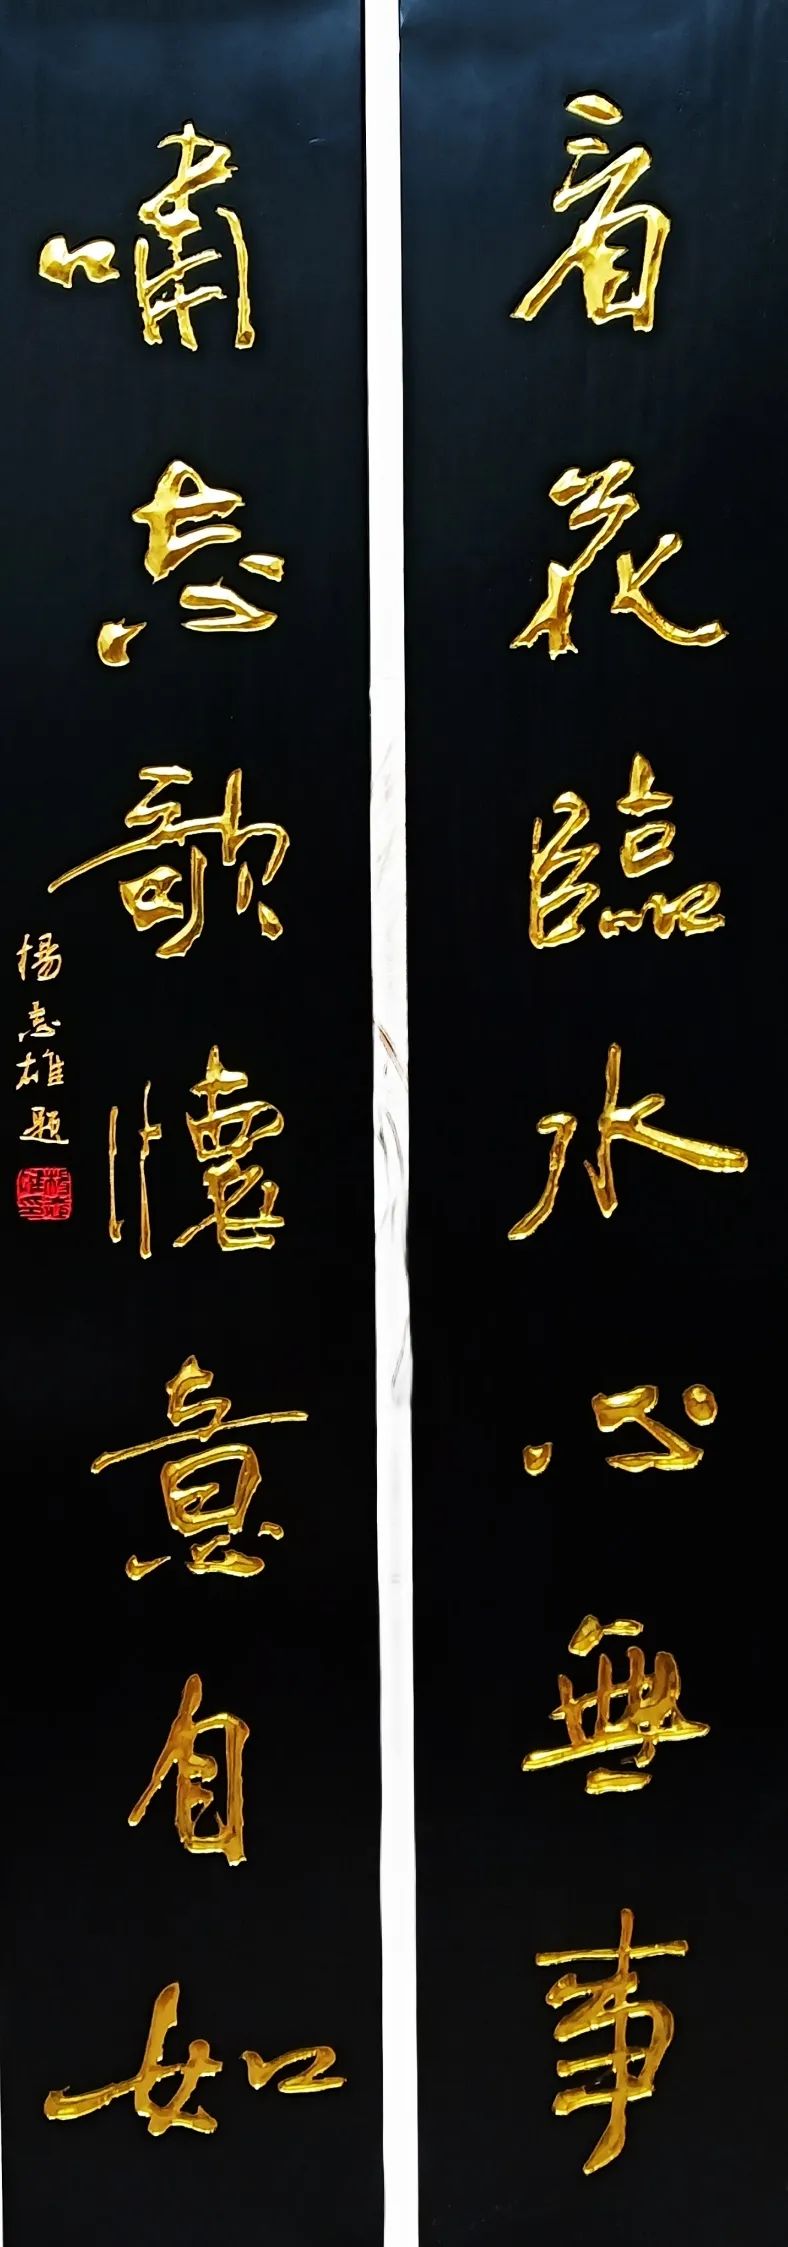 看花臨水心無事
嘯志歌懷意自如
楊志雄題